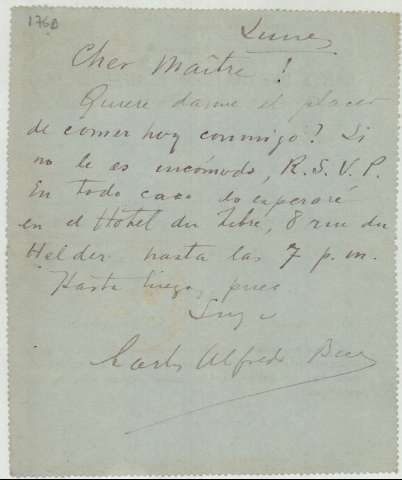 1760
Lunes
Cher Maître !
Quiere darme el placer
de comer hoy conmigo? Si
no le es incómodo, R. S. V. P.
En todo caso lo esperaré
en el Hotel du Tibre, 8 rue du
Helder hasta las 7 p. m.
Hasta luego, pues
Suyo
Carlos Alfredo